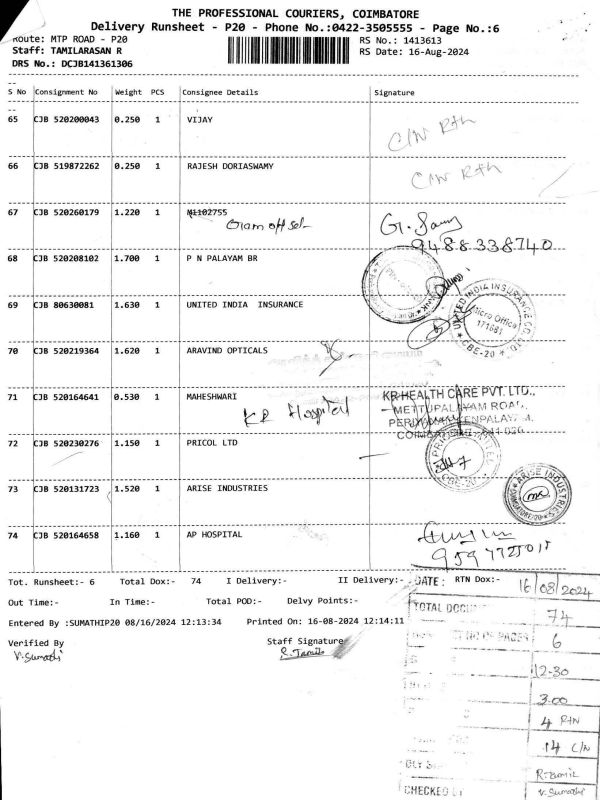 THE PROFESSIONAL COURIERS, COIMBATORE
Delivery Runsheet - P20 - Phone No.:0422-3505555 - Page No.:6
Route: MTP ROAD - P20 RS No.: 1413613
Staff: TAMILARASAN R RS Date: 16-Aug-2024
DRS No.: DCJB141361306
S No Consignment No Weight PCS Consignee Details Signature
65 CJB 520200043 0.250 1 VIJAY
C/N Rtn
66 CJB 519872262 0.250 1 RAJESH DORIASWAMY
C/N Rtn
67 CJB 520260179 1.220 1 M1102755
9488338740
68 CJB 520208102 1.700 1 P N PALAYAM BR
69 CJB 80630081 1.630 1 UNITED INDIA INSURANCE
UNITED INDIA INSURANCE CO. LTD.
Micro Office
171681
CBE-20
70 CJB 520219364 1.620 1 ARAVIND OPTICALS
71 CJB 520164641 0.530 1 MAHESHWARI
KR Hospital
KR HEALTH CARE PVT. LTD.,
METTUPALAYAM ROAD,
72 CJB 520230276 1.150 1 PRICOL LTD
73 CJB 520131723 1.520 1 ARISE INDUSTRIES
ARISE INDUSTRIES
74 CJB 520164658 1.160 1 AP HOSPITAL
Tot. Runsheet:- 6 Total Dox:- 74 I Delivery:- II Delivery:- RTN Dox:-
DATE: 16/08/2024
Out Time:- In Time:- Total POD:- Delvy Points:-
TOTAL 74
Entered By :SUMATHIP20 08/16/2024 12:13:34 Printed On: 16-08-2024 12:14:11
NO OF PAGES 6
Verified By Staff Signature
V. Sumathi R. Tamil
12-30
3.00
4 RTN
14 C/N
R. Tamil
CHECKED BY V. Sumathi